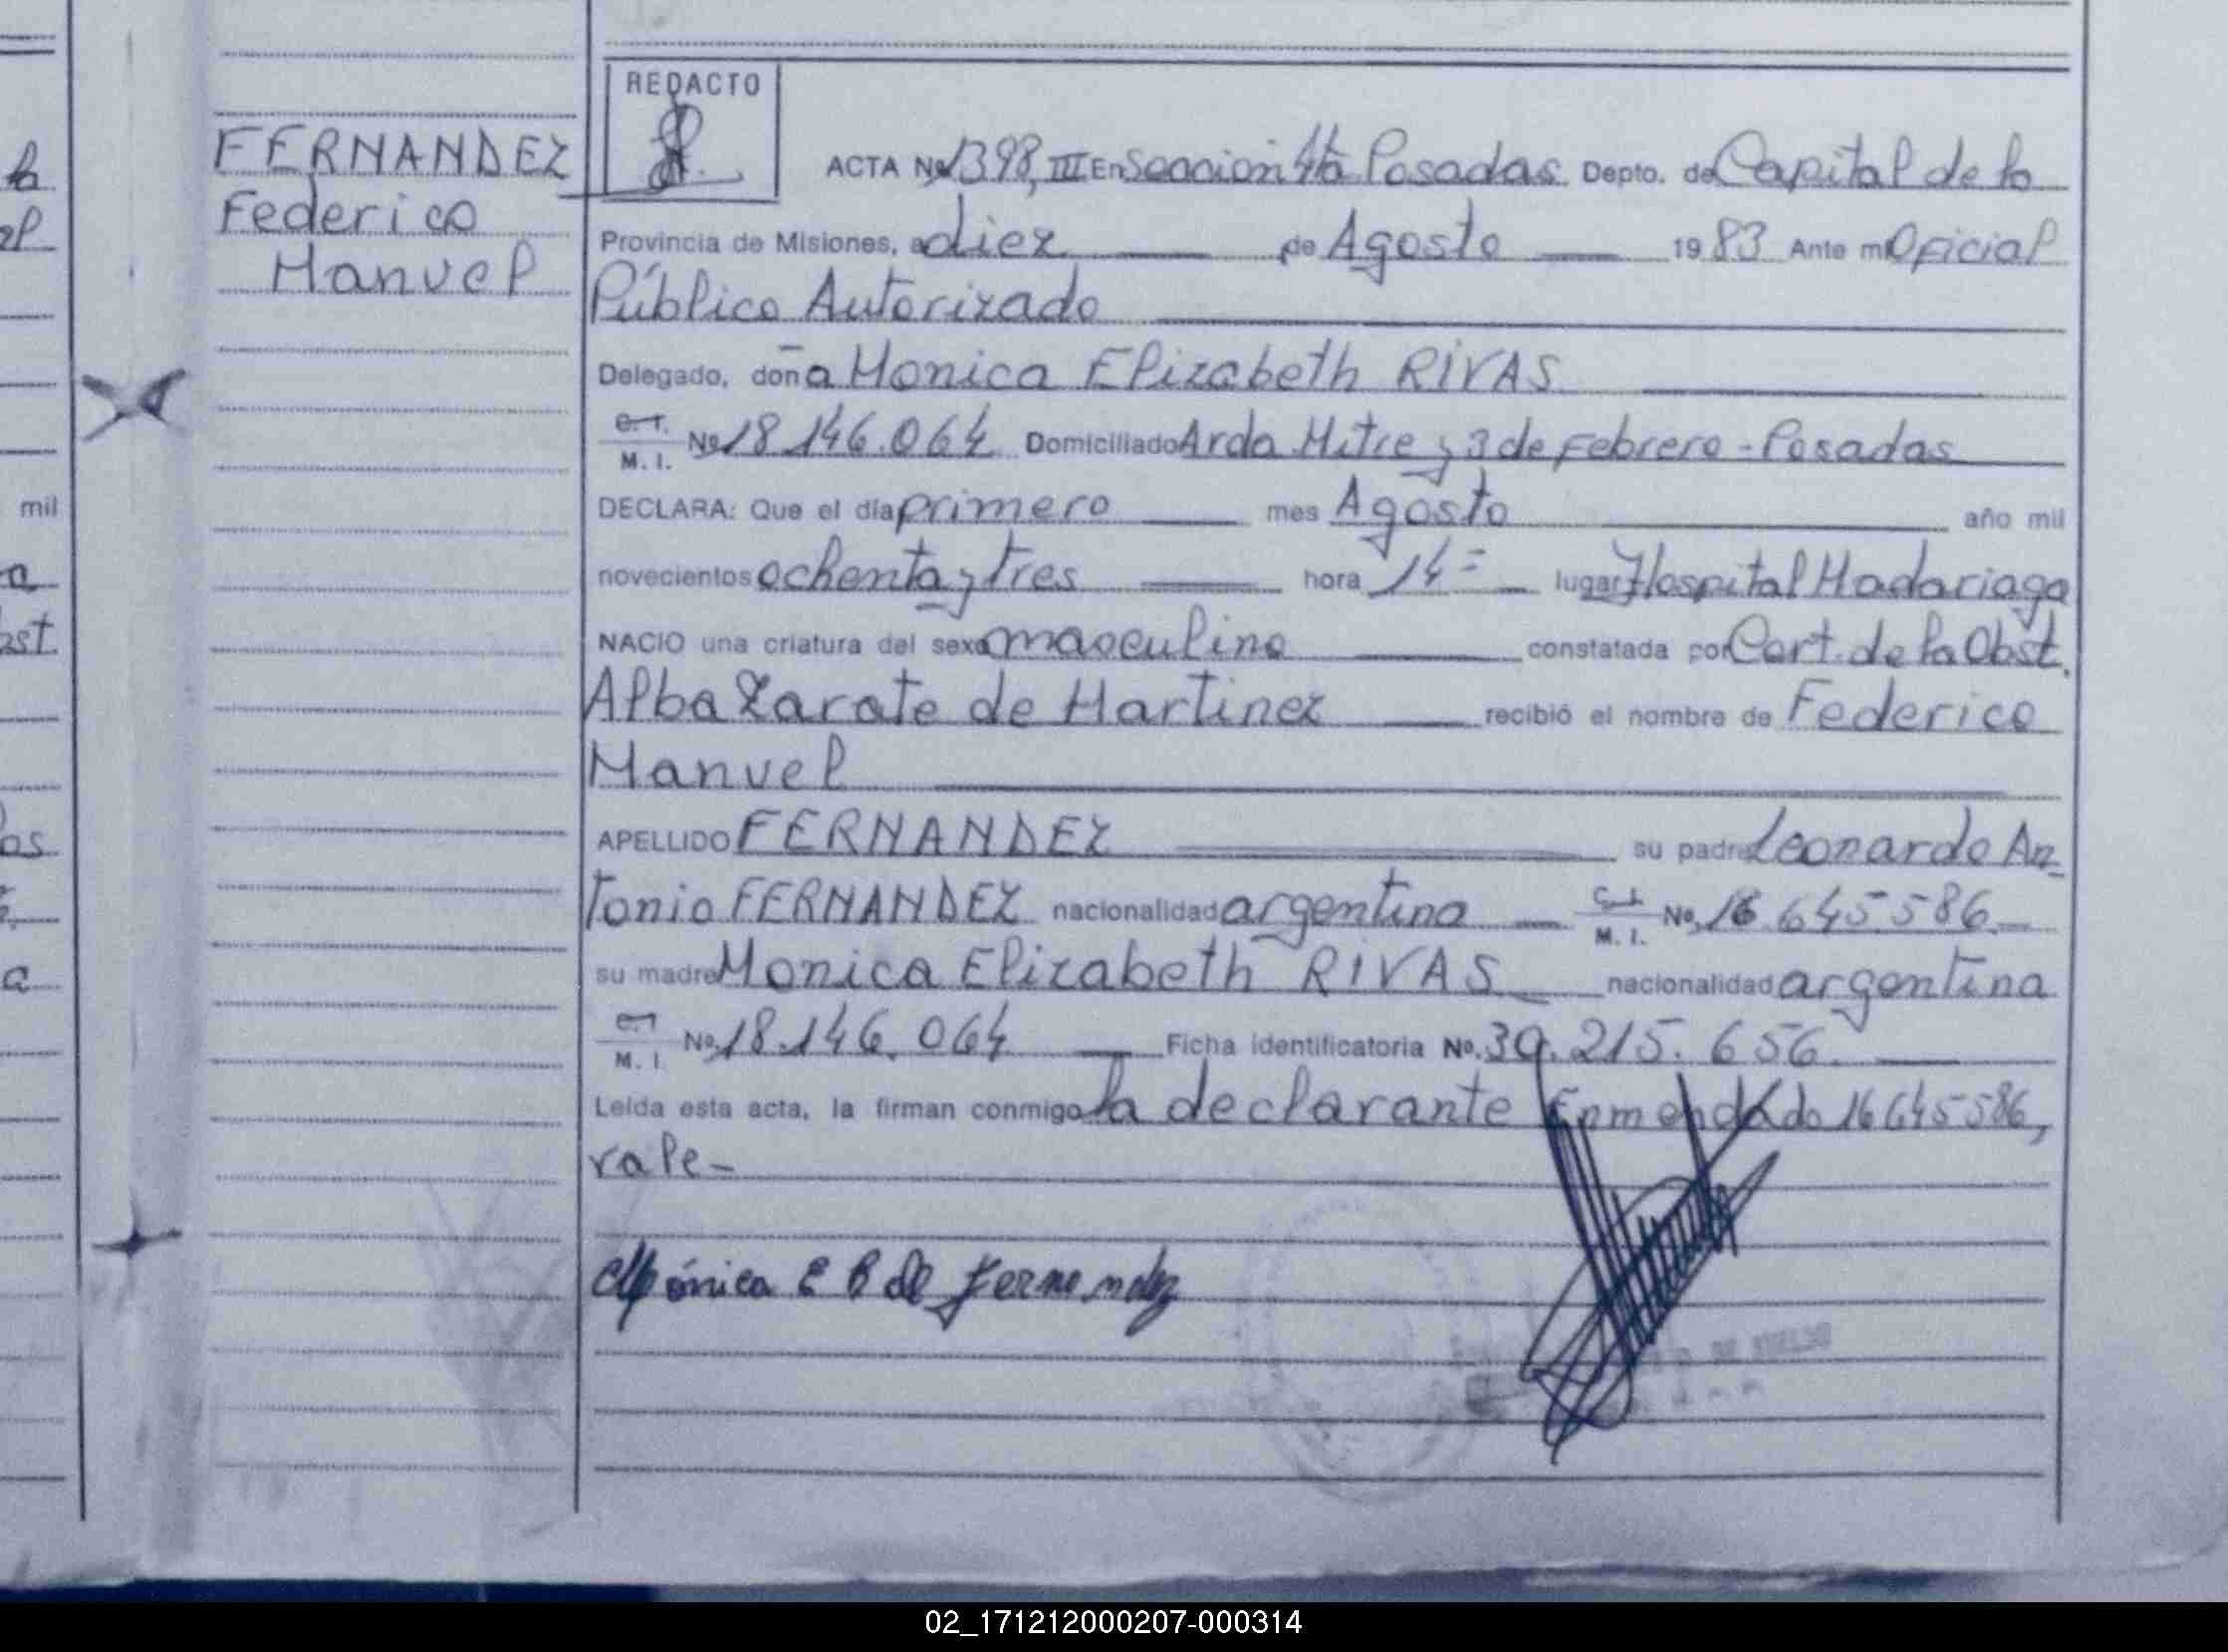 FERNANDEZ
Federico
Manuel
REDACTO
ACTA Nº 1398, III En Seccion 4ta Posadas Depto. de Capital de la
Provincia de Misiones, a diez de Agosto 1983 Ante mi Oficial
Público Autorizado
Delegado, doña Monica Elizabeth RIVAS
M. I. Nº 18.146.064 Domiciliado Avda Mitre y 3 de Febrero - Posadas
DECLARA: Que el día primero mes Agosto año mil
novecientos ochenta y tres hora 14= lugar Hospital Madariaga
NACIO una criatura del sexo masculino constatada por Cert. de la Obst.
Alba Zarate de Martinez recibió el nombre de Federico
Manuel
APELLIDO FERNANDEZ su padre Leonardo An-
tonio FERNANDEZ nacionalidad argentina M. I. Nº 16.645586
su madre Monica Elizabeth RIVAS nacionalidad argentina
M. I. Nº 18.146.064 Ficha identificatoria Nº 30.215.656
Leída esta acta, la firman conmigo la declarante Enmendado 16645586,
vale -
Mónica E R de Fernandez
mil
02_171212000207-000314